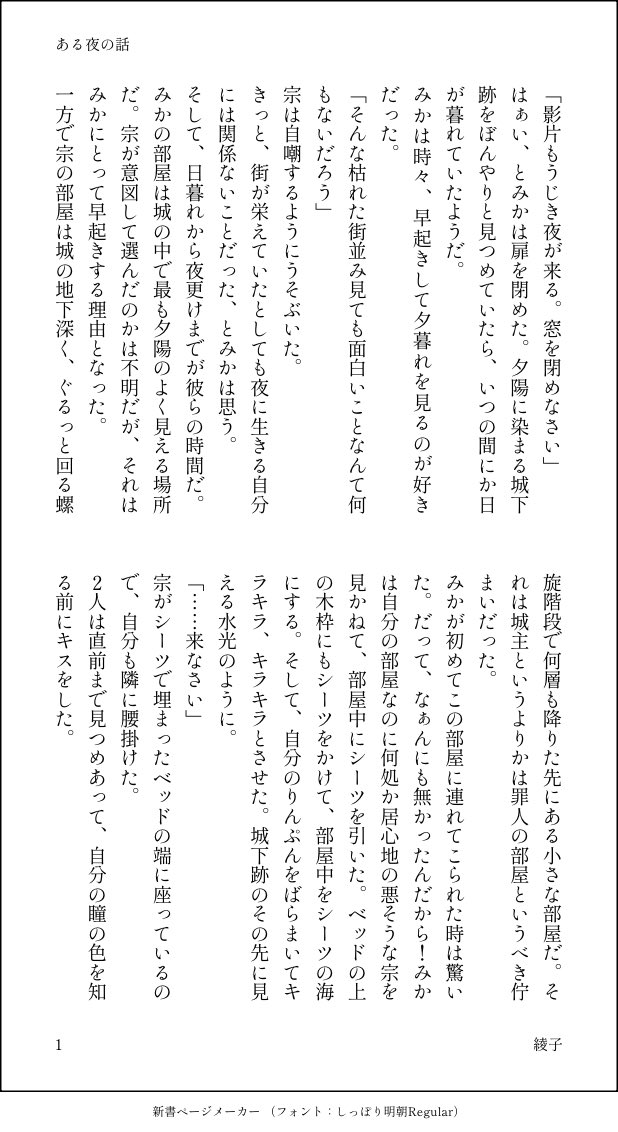 ある夜の話
「影片もうじき夜が来る。窓を閉めなさい」
はぁい、とみかは扉を閉めた。夕陽に染まる城下
跡をぼんやりと見つめていたら、いつの間にか日
が暮れていたようだ。
みかは時々、早起きして夕暮れを見るのが好き
だった。
「そんな枯れた街並み見ても面白いことなんて何
もないだろう」
宗は自嘲するようにうそぶいた。
きっと、街が栄えていたとしても夜に生きる自分
には関係ないことだった、とみかは思う。
そして、日暮れから夜更けまでが彼らの時間だ。
みかの部屋は城の中で最も夕陽のよく見える場所
だ。宗が意図して選んだのかは不明だが、それは
みかにとって早起きする理由となった。
一方で宗の部屋は城の地下深く、ぐるっと回る螺
旋階段で何層も降りた先にある小さな部屋だ。そ
れは城主というよりかは罪人の部屋というべき佇
まいだった。
みかが初めてこの部屋に連れてこられた時は驚い
た。だって、なぁんにも無かったんだから！みか
は自分の部屋なのに何処か居心地の悪そうな宗を
見かねて、部屋中にシーツを引いた。ベッドの上
の木枠にもシーツをかけて、部屋中をシーツの海
にする。そして、自分のりんぷんをばらまいてキ
ラキラ、キラキラとさせた。城下跡のその先に見
える水光のように。
「……来なさい」
宗がシーツで埋まったベッドの端に座っているの
で、自分も隣に腰掛けた。
2人は直前まで見つめあって、自分の瞳の色を知
る前にキスをした。
1
綾子
新書ページメーカー （フォント：しっぽり明朝Regular）